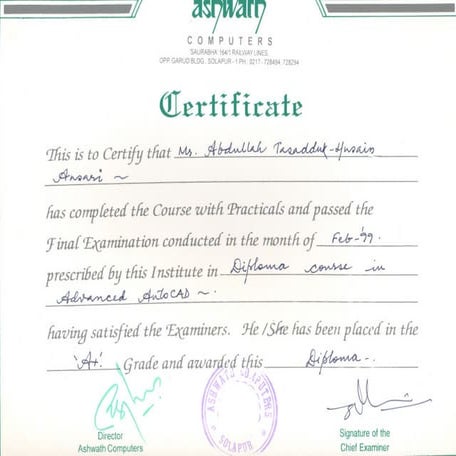 ashwath
COMPUTERS
'SAURABHA' 164/1 RAILWAY LINES,
OPP. GARUD BLDG., SOLAPUR - 1 PH.: 0217 - 728494, 728294
Certificate
This is to Certify that Mr. Abdullah Tasadduk-Husain
Ansari ~
has completed the Course with Practicals and passed the
Final Examination conducted in the month of Feb-'99.
prescribed by this Institute in Diploma course in
Advanced AutoCAD ~.
having satisfied the Examiners. He /She has been placed in the
'A+' Grade and awarded this Diploma-.
ASHWATH COMPUTERS
SOLAPUR
Director
Ashwath Computers
Signature of the
Chief Examiner